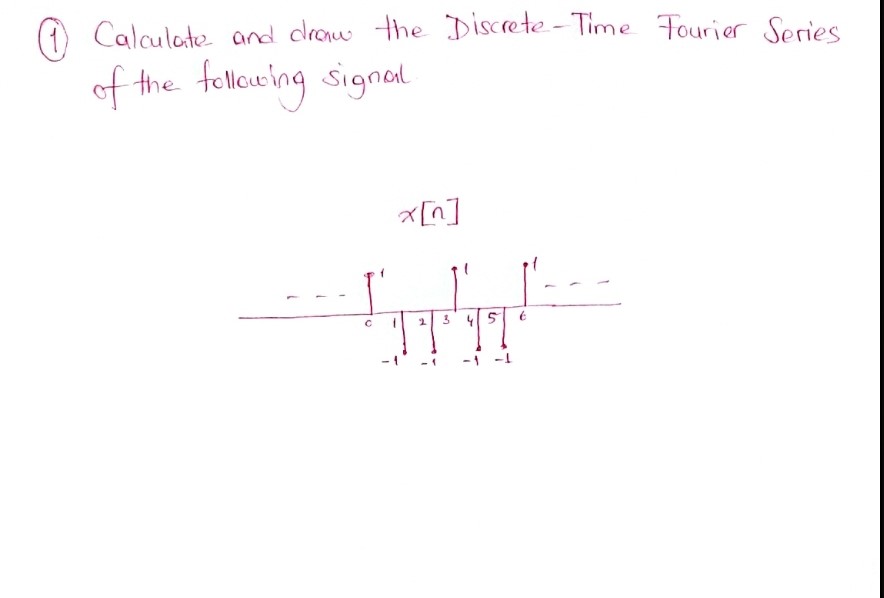 ① Calculate and draw the Discrete-Time Fourier Series
of the following signal
x[n]
1 1 1
0 1 2 3 4 5 6
-1 -1 -1 -1